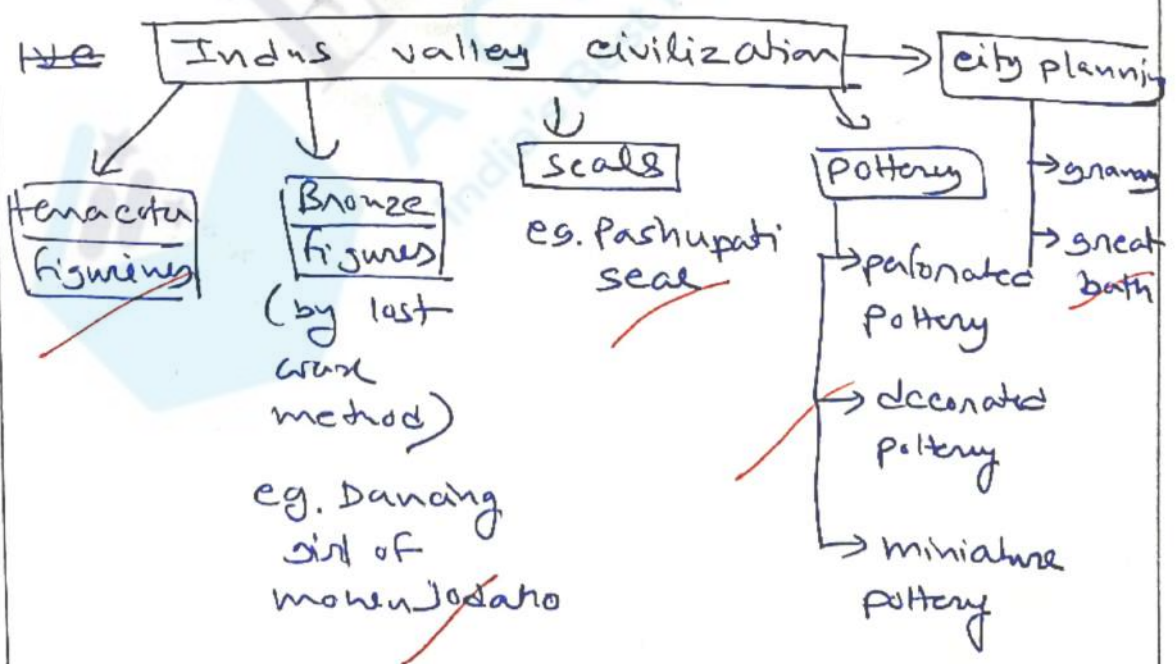 Indus valley civilization
city planning
granary
great
bath
terracotta
figurines
Bronze
figures
(by lost
wax
method)
eg. Dancing
girl of
mohenjodaro
seals
eg. Pashupati
seal
pottery
perforated
pottery
decorated
pottery
miniature
pottery
India's Best